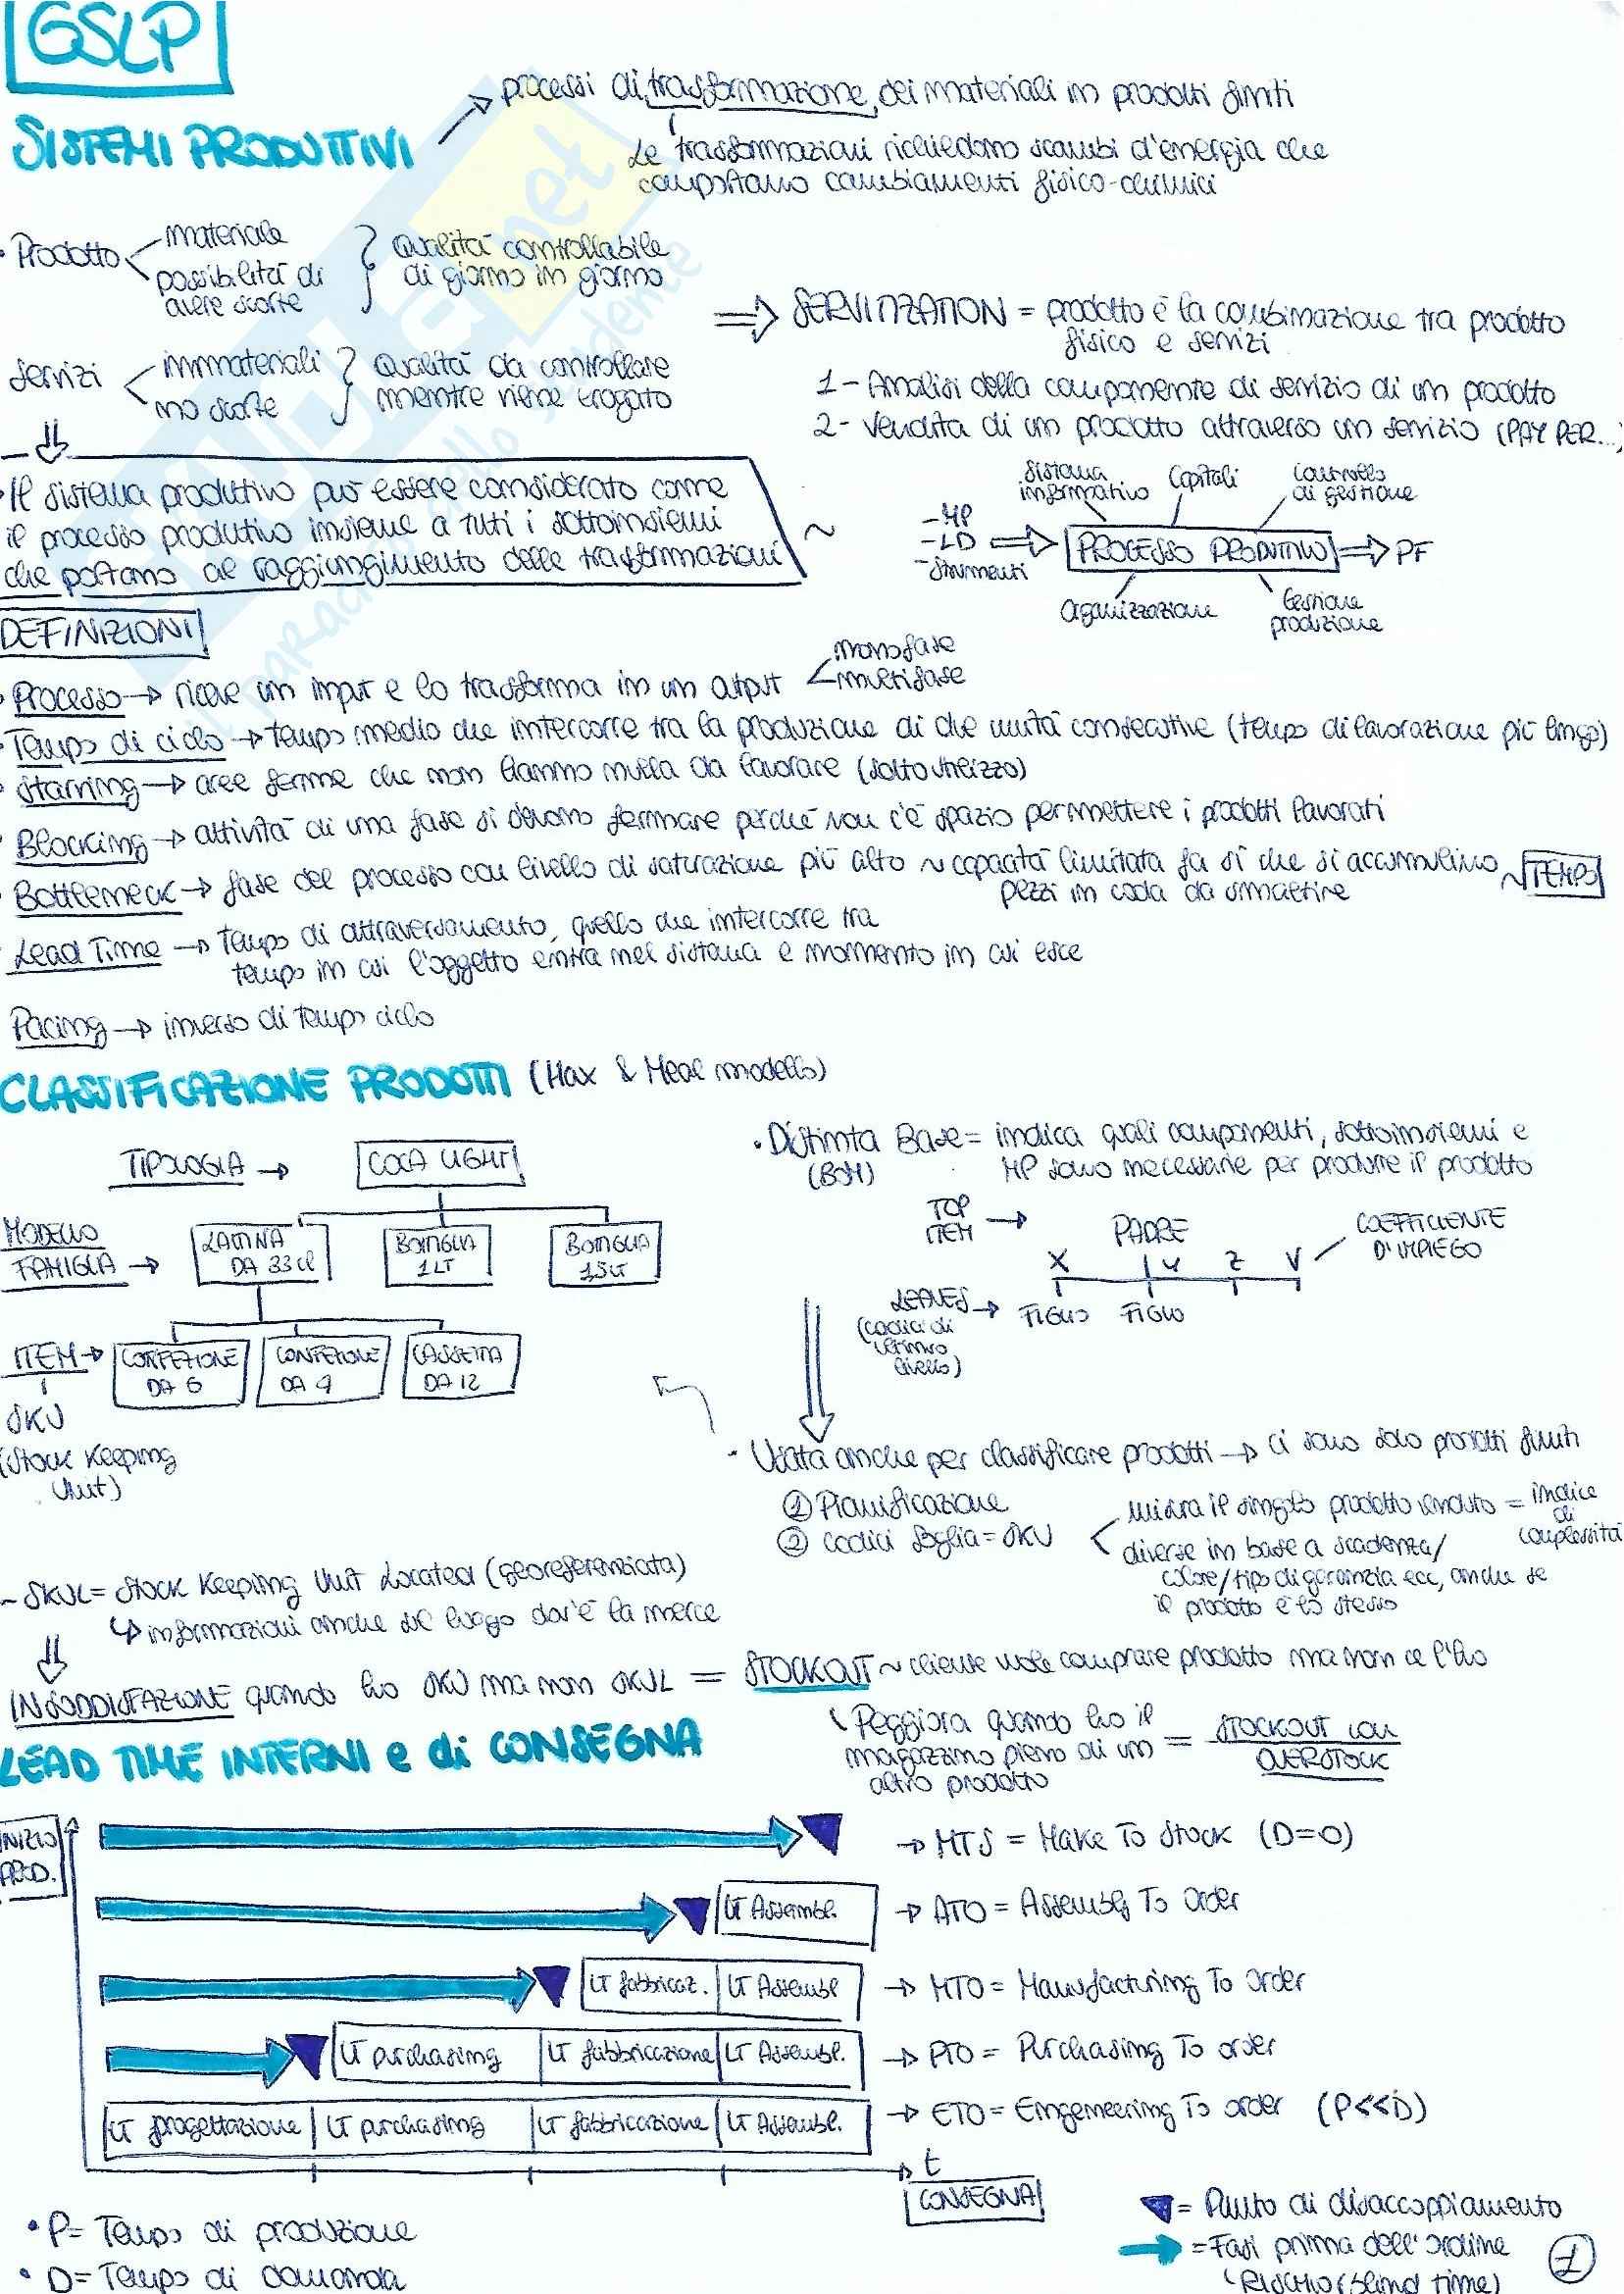 GSLP
SISTEMI PRODUTTIVI → processi di trasformazione dei materiali in prodotti finiti
Le trasformazioni richiedono scambi d'energia che
comportano cambiamenti fisico-chimici
• Prodotto
materiale
possibilità di
avere scorte
Qualità controllabile
di giorno in giorno
Servizi
immateriali
no scorte
Qualità da controllare
mentre viene erogato
⇒ SERVITIZATION = prodotto è la combinazione tra prodotto
fisico e servizi
1 - Analisi della componente di servizio di un prodotto
2 - Vendita di un prodotto attraverso un servizio (PAY PER...)
• Il sistema produttivo può essere considerato come
il processo produttivo insieme a tutti i sottoinsiemi
che portano al raggiungimento delle trasformazioni
~
sistema
informativo
Capitali
controllo
di gestione
- MP
- LD
- strumenti
⇒ PROCESSO PRODUTTIVO ⇒ PF
organizzazione
Gestione
produzione
DEFINIZIONI
• Processo → riceve un input e lo trasforma in un output
monofase
multifase
• Tempo di ciclo → tempo medio che intercorre tra la produzione di due unità consecutive (tempo di lavorazione più lungo)
• Starving → aree ferme che non hanno nulla da lavorare (sottoutilizzo)
• Blocking → attività di una fase si devono fermare perché non c'è spazio per mettere i prodotti lavorati
• Bottleneck → fase del processo con livello di saturazione più alto ~ capacità limitata fa sì che si accumulino ~ TEMPO
pezzi in coda da smaltire
• Lead Time → Tempo di attraversamento, quello che intercorre tra
tempo in cui l'oggetto entra nel sistema e momento in cui esce
Pacing → inverso di tempo ciclo
CLASSIFICAZIONE PRODOTTI (Hax & Meal modello)
TIPOLOGIA → COCA LIGHT
MODELLO
FAMIGLIA →
LATTINA
DA 33cl
BOTTIGLIA
1LT
BOTTIGLIA
1,5LT
ITEM →
CONFEZIONE
DA 6
CONFEZIONE
DA 9
CASSETTA
DA 12
SKU
(Stock Keeping
Unit)
• Distinta Base = indica quali componenti, sottoinsiemi e
(BOM) MP sono necessarie per produrre il prodotto
TOP
ITEM →
PADRE
X Y Z V
COEFFICIENTE
D'IMPIEGO
LEAVES →
(codici di
ultimo
livello)
FIGLIO FIGLIO
• Usata anche per classificare prodotti → ci sono solo prodotti finiti
① Pianificazione
② codici foglia = SKU
misura il singolo prodotto venduto = indice
di
complessità
diverse in base a scadenza/
colore/tipo di garanzia ecc, anche se
il prodotto è lo stesso
~ SKUL = Stock Keeping Unit Located (georeferenziata)
↳ informazioni anche sul luogo dov'è la merce
INSODDISFAZIONE quando ho SKU ma non SKUL = STOCKOUT ~ cliente vuole comprare prodotto ma non ce l'ho
Peggiora quando ho il
magazzino pieno di un
altro prodotto
= STOCKOUT con
OVERSTOCK
LEAD TIME INTERNI e di CONSEGNA
INIZIO
PROD.
→ MTS = Make To Stock (D=0)
LT Assembl. → ATO = Assembly To Order
LT fabbricaz. LT Assembl → MTO = Manufacturing To Order
LT purchasing LT fabbricazione LT Assembl. → PTO = Purchasing To order
LT progettazione LT purchasing LT fabbricazione LT Assembl. → ETO = Engeneering To order (P<<D)
t
CONSEGNA
• P = Tempo di produzione
• D = Tempo di domanda
= Punto di disaccoppiamento
→ = Fasi prima dell'ordine
RISCHIO (blind time)
1